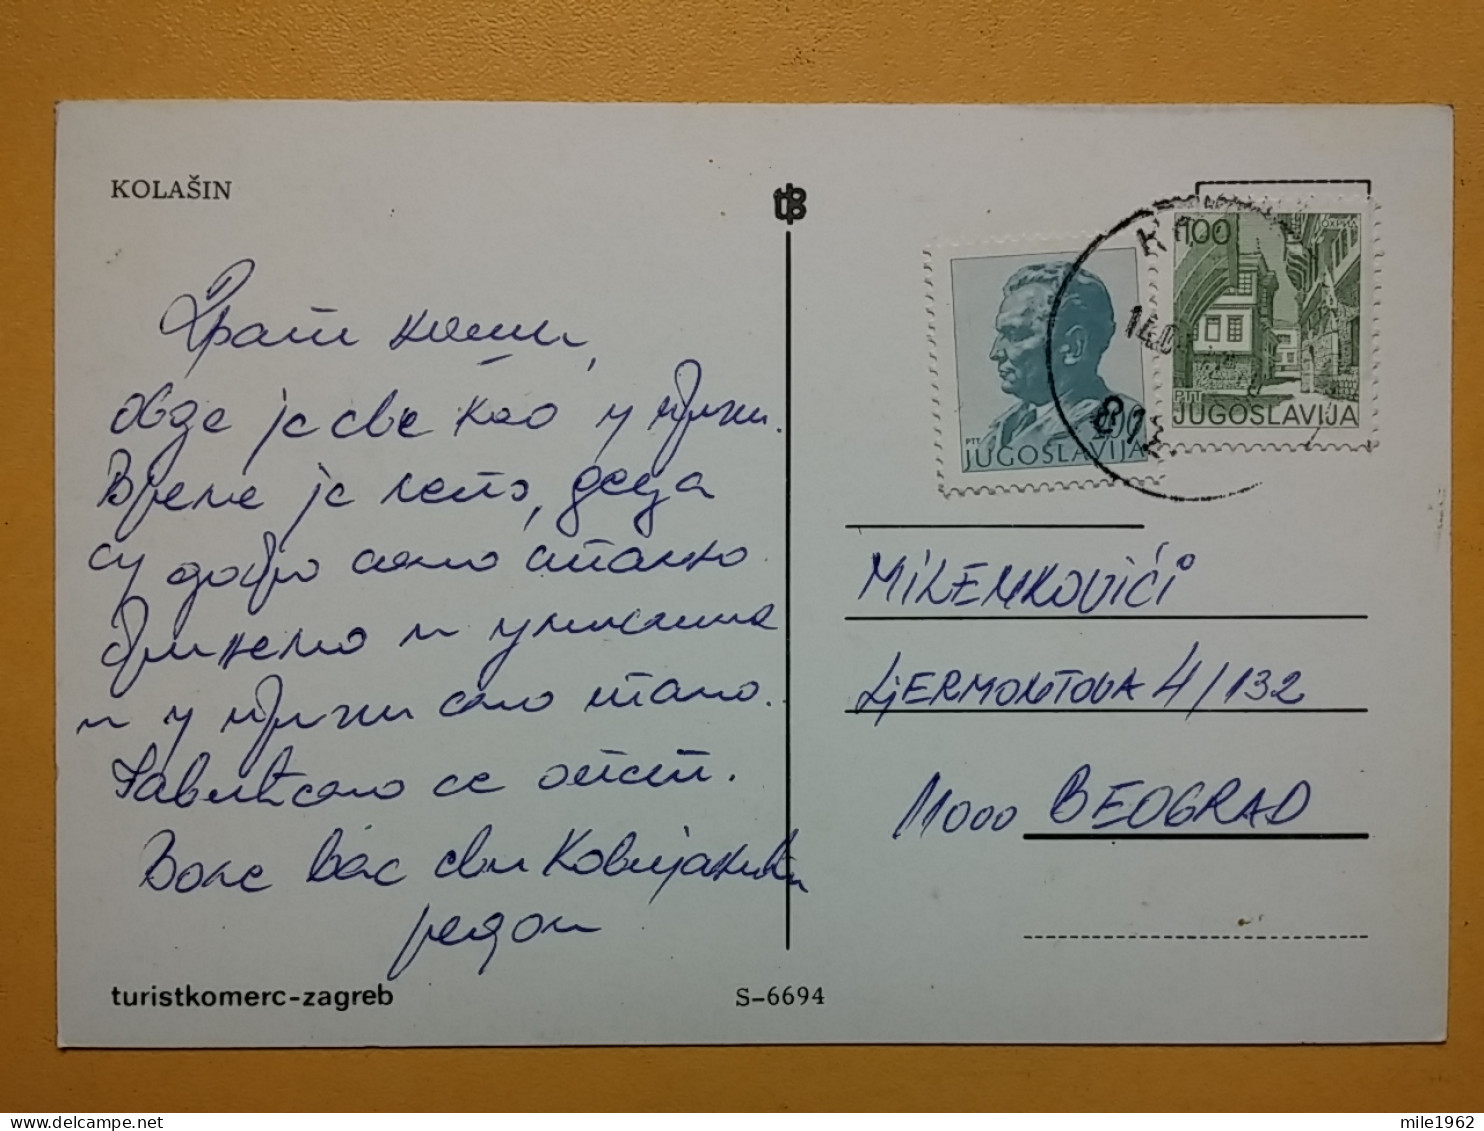 KOLAŠIN
Драги наши,
овде је све као у причи.
Време је лепо, деца
су добро само стално
бринемо и уписала
и у причи смо мало.
Јавићемо се опет.
Воле вас сви Ковијанићи
редом
turistkomerc-zagreb
S-6694
1.00
ОХРИД
PTT
JUGOSLAVIJA
2.00
PTT
JUGOSLAVIJA
MILENKOVIĆI
LJERMONTOVA 4/132
11000 BEOGRAD
mile1962